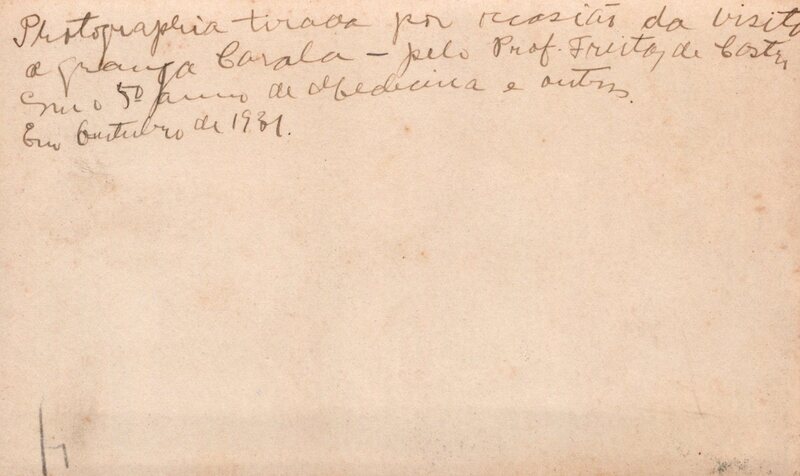 Photographia tirada por occasião da visita
a granja Carola - pelo Prof. Freitas, de Castro
com o 5º anno de Medicina e outros.
Em Outubro de 1931.